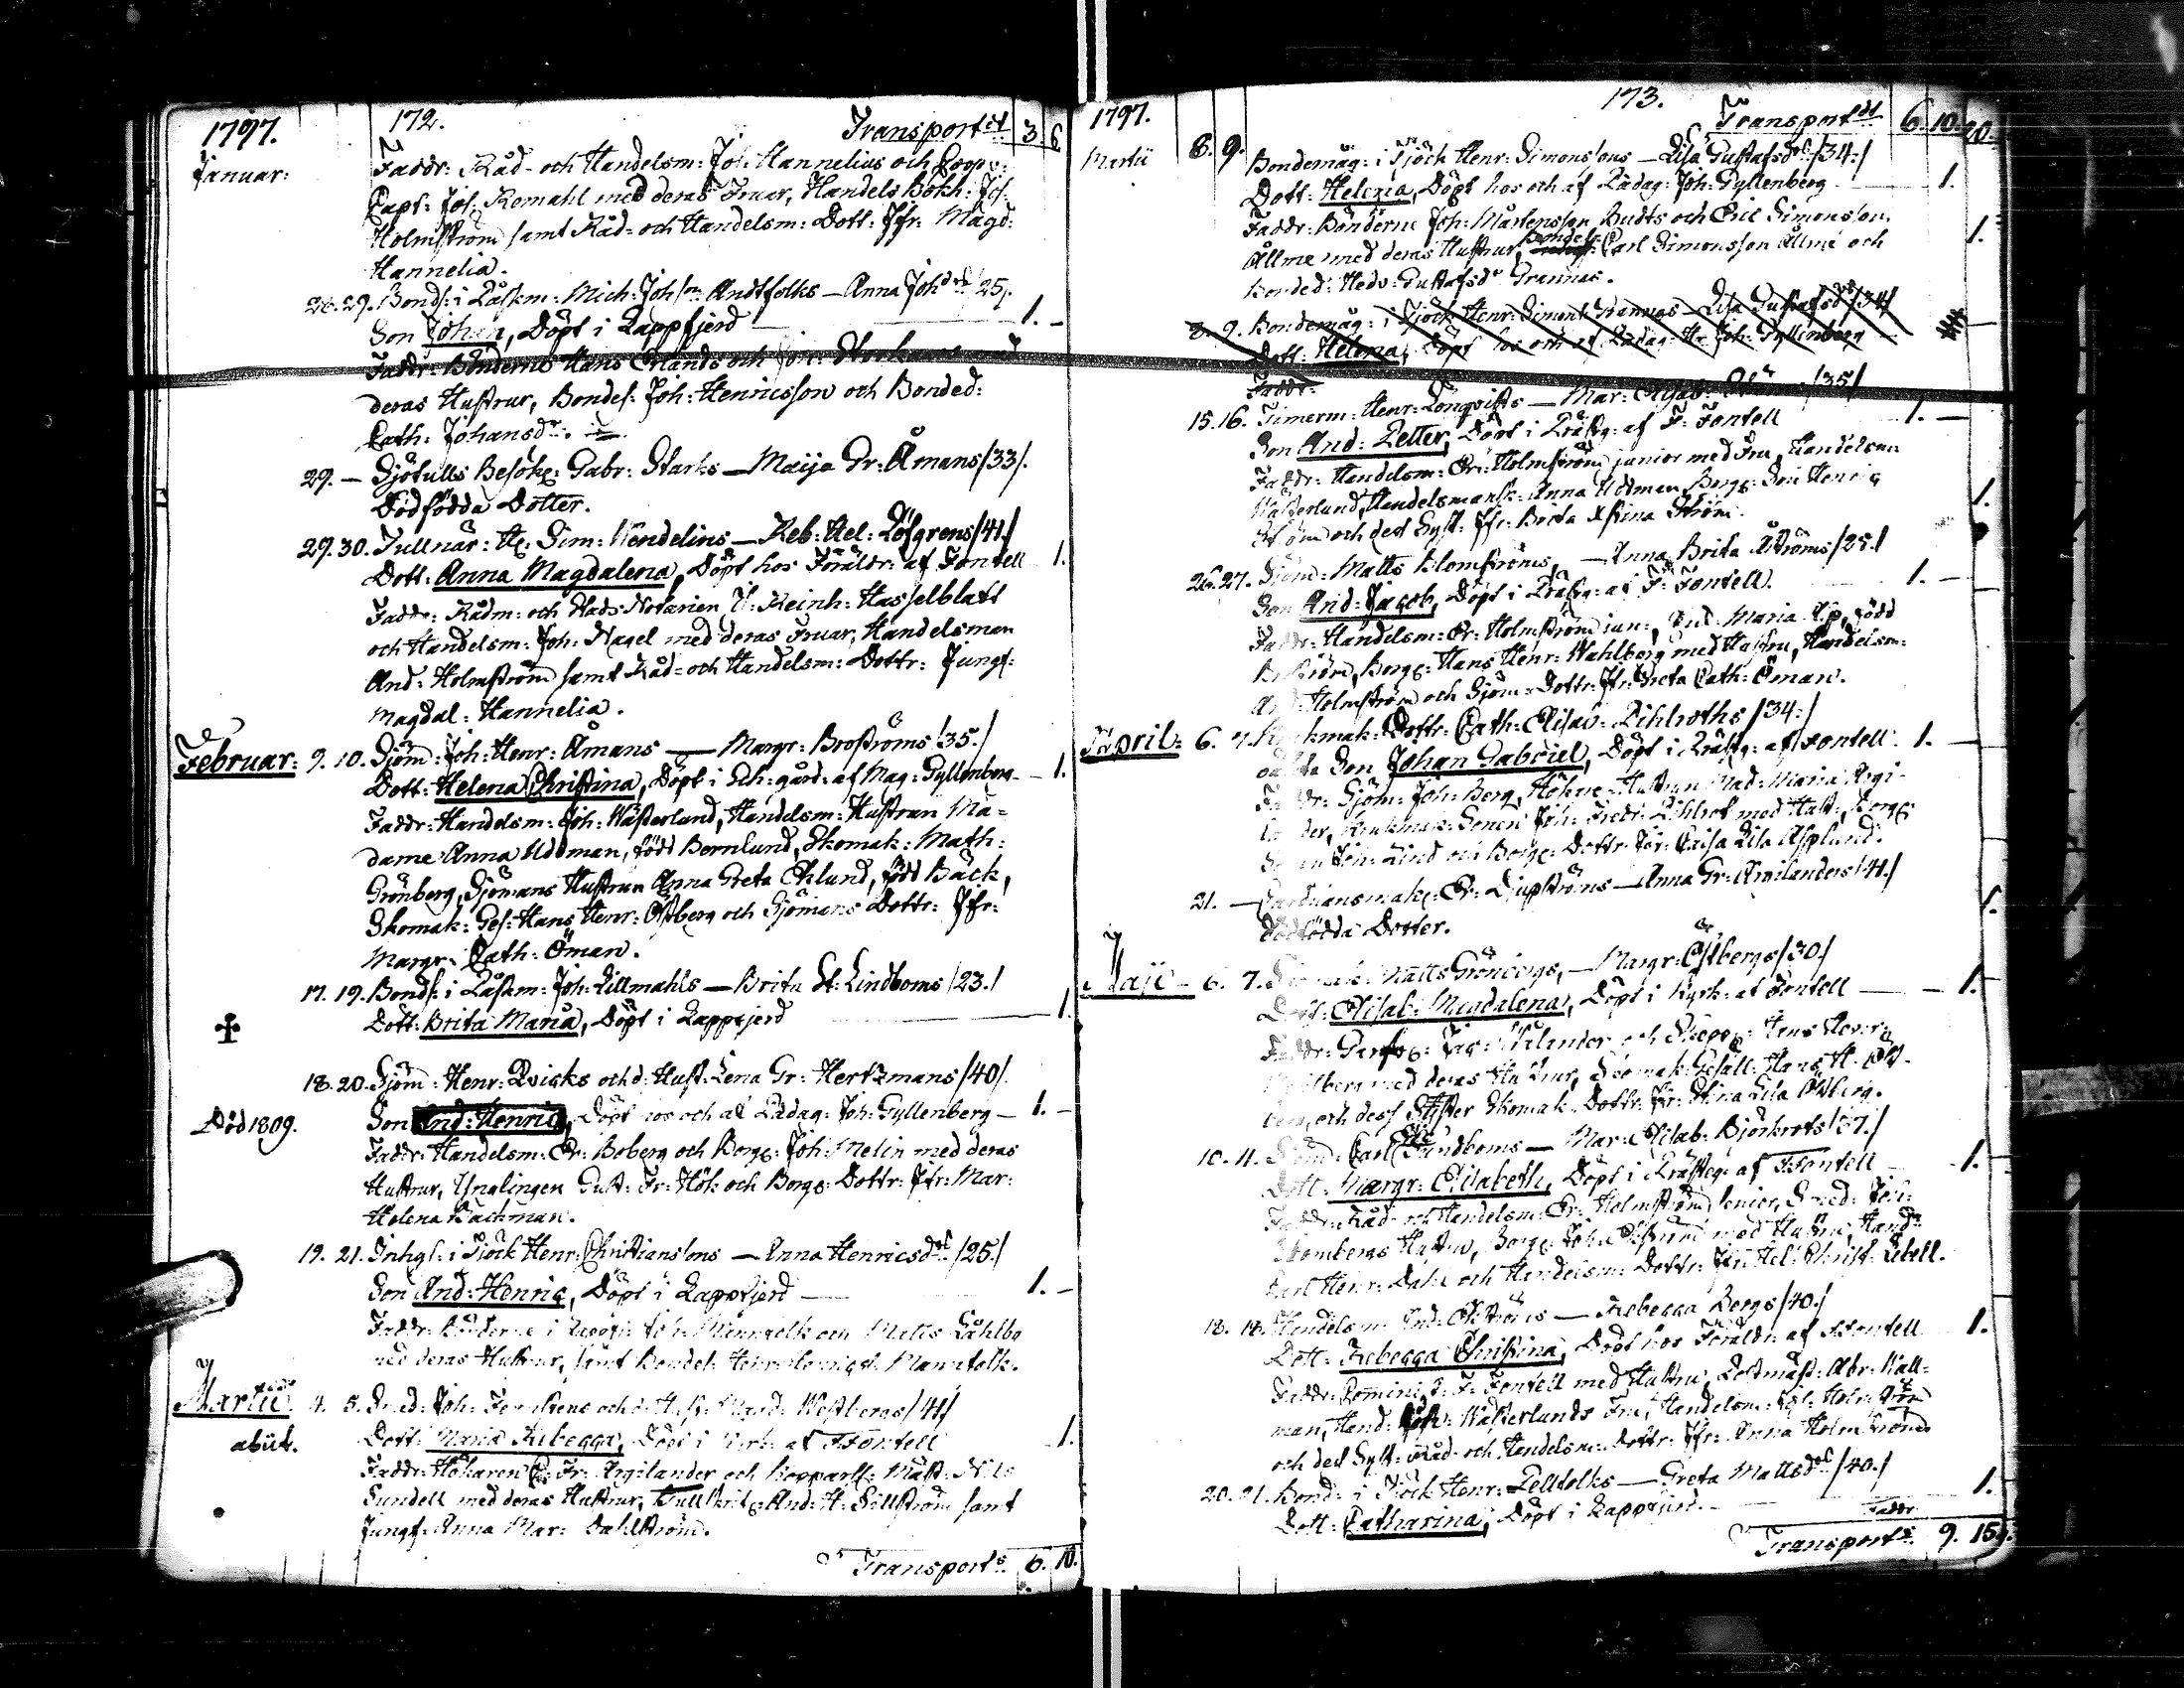 1797. 172. Transport 3 6
Januar: Faddr: Råd- och Handelsm: Joh: Hannelius och
Capt: Joh: Komahl med deras Fruar, Handels Bokh: Joh:
Holmström samt Råd- och Handelsm: Dott: Jfr: Magd:
Hannelia.
28. 29. Bonds: i Låstm: Mich: Johson Andtfolks — Anna Johdrs /25/.
Son Johan, Döpt i Lappfjerd 1. -
Faddr: Bönderne Hans och
deras Hustrur, Bondes: Joh: Henricsson och Bonded:
Cath: Johansdr.
29. — Sjötulls Besök: Gabr: Starks — Maija Gr: Åmans /33/.
Dödfödda Dotter.
29. 30. Tullnär: H: Sim: Wendelins — Reb: Hel: Löfgrens /41/
Dott: Anna Magdalena, Döpt hos Föräldr: af Fontell 1.
Faddr: Rådm: och Stads Notarien Reinh: Hasselblatt
och Handelsm: Joh: Nagel med deras Fruar, Handelsman
And: Holmström samt Råd- och Handelsm: Dottr: Jungf:
Magdal: Hannelia.
Februar: 9. 10. Sjöm: Joh: Henr: Åmans — Margr: Broströms /35./
Dott: Helena Christina, Döpt i Sch: gård: af Mag: Gyllenberg — 1.
Faddr: Handelsm: Joh: Wästerlund, Handelsm: Hustrun Ma-
dame Anna Uddman, född Bernlund, Skomak: Math:
Grönberg, Sjömans Hustrun Anna Greta Eklund, född Bäck,
Skomak: Ges: Hans Henr: Östberg och Sjömans Dottr: Jfr:
Margr: Cath: Öman.
17. 19. Bonds: i Låstm: Joh: Lillmahls — Brita St: Lindboms /23./
Dott: Brita Maria, Döpt i Lappfjerd 1.
18. 20. Sjöm: Henr: Qvicks och d: Hust: Lena Gr: Hertzmans /40/.
Död 1809. Son And: Henric, Döpt hos och af Pädag: Joh: Gyllenberg — 1. -
Faddr: Handelsm: Er: Boberg och Borg: Joh: Melin med deras
Hustrur, Ynglingen Gust: Fr: Hök och Borg: Dottr: Jfr: Mar:
Helena Backman.
19. 21. Inhys: i Tjöck Henr: Christianssons — Anna Henricsdrs /25./
Son And: Henric, Döpt i Lappfjerd — 1. -
Faddr: Bönderne i Joh: Mannfolk och Matts
med deras Hustrur, samt Bondes: Mannfolk.
Martii 4. 5. Smed: Joh: och d: Hust: Westbergs /41/
abiit. Dott: Maria Rebecca, Döpt i Kyrk: af Fontell 1.
Faddr: Hökaren Er: Fr: Argilander och Kopparsl: Mäst: Nils
Sundell med deras Hustrur, Tullskrif: And: H: Sillström samt
Jungf: Anna Mar: Dahlström.
Transports 6. 10.
1797. 173. Transport 6. 10. 20.
Martii 8. 9. Bondemåg: i Tjöck Henr: Simonssons — Lisa Gustafsdrs /34:/
Dott: Helena, Döpt hos och af Pädag: Joh: Gyllenberg 1.
Faddr: Bönderne Joh: Mårtensson Rudts och Eric Simonsson 1.
Ållme med deras Hustrur, Bondes: Carl Simonsson Ållme och
Bonded: Hedv: Gustafsdr Grannas.
8. 9. Bondemåg: i Tjöck Henr: Simons Hannas — Lisa Gustafsdrs /34/
Dott: Helena, Döpt hos och af Pädag: Hr Joh: Gyllenberg
Faddr:
15. 16. Timerm: Henr: Lönqvists — Mar: Elisab: /35/
Son And: Petter, Döpt i Prästg: af F: Fontell 1. -
Faddr: Handelsm: Er: Holmström junior med Fru, Handelsm
Wästerlund, Handelsmansk: Anna Uddman Borg: Son Henric 1.
Ström och dess Syst: Jfr: Brita Stina Ström.
26. 27. Sjöm: Matts Blomströms, — Anna Brita Åströms /25./
Son And: Jacob, Döpt i Prästg: af F: Fontell. 1. -
Faddr: Handelsm: Er: Holmström jun:, Maria född
Borg: Hans Henr: Wahlberg med Hustru, Handelsm:
And: Holmström och Sjöm: Dottr: Jfr: Greta Cath: Öman.
April: 6. 7. Dottr: Cath: Elisab: Lihlroths /34:/
oäkta Son Johan Gabriel, Döpt i Prästg: af Fontell. 1. -
Faddr: Sjöm: Joh: Berg, Hökare Hustrun Mad: Maria Argi-
lander, Sonen Joh: Fredr: Lihlrot med Hust: Borg:
Sonen Joh: Lind och Borg: Dottr: Jfr: Caisa Lisa Asplund.
21. — Er: Diupströms — Anna Gr: Argilanders /41./ 1.
Dödfödda Dotter.
Maji — 6. 7. Skomak: Matts Grönbergs, — Margr: Östbergs /30./
Dott: Elisab: Magdalena, Döpt i Kyrk: af Fontell — — 1.
Faddr: och Skepp: Hans Henr:
med deras Hustrur, Skomak: Gesäll: Hans H. Öst-
berg, och dess Syster Skomak: Dottr: Jfr: Stina Lisa Östberg.
10. 11. Sjöm: Carl Sundboms — Mar: Elisab: Björkrots /37./
Dott: Margr: Elisabeth, Döpt i Prästg: af Fontell — 1. -
Faddr: Råd- och Handelsm: Er: Holmström senior, Smed:
Hustru, Borg: med Hustru, Handm
Carl Henr: Dahl och Handelsm: Dottr: Jfr: Hel: Christ: Lebell.
18. 18. Handelsm: And: — Rebecca Bergs /40./
Dott: Rebecca Christina, Döpt hos Föräldr: af Fontell 1.
Faddr: Comini: F: Fontell med Hustru, Postmäst: Abr: Wall-
man, Hand: Joh: Wästerlunds Fru, Handelsm: Holmström
och dess Syst: Råd- och Handelsm: Dottr: Jfr: Anna Holmström
20. 21. Bond: i Tjöck Henr: Pellfolks — Greta Mattsdrs /40./
Dott: Catharina, Döpt i Lappfjerd. — 1.
Faddr
Transports 9. 15.